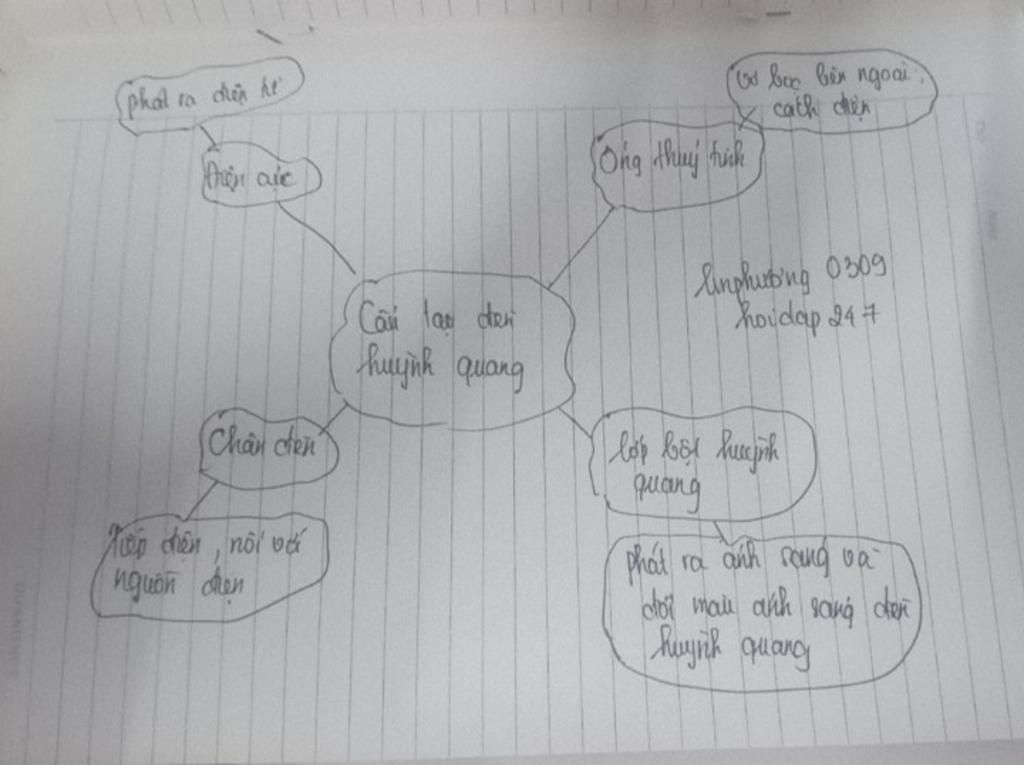 phát ra điện tử
Điện cực
vỏ bọc bên ngoài,
cách điện
Ống thuỷ tinh
Cấu tạo đèn
huỳnh quang
linphương 0309
hoidap 247
Chân đèn
Tiếp điện, nối với
nguồn điện
lớp bột huỳnh
quang
phát ra ánh sáng và
đổi màu ánh sáng đèn
huỳnh quang